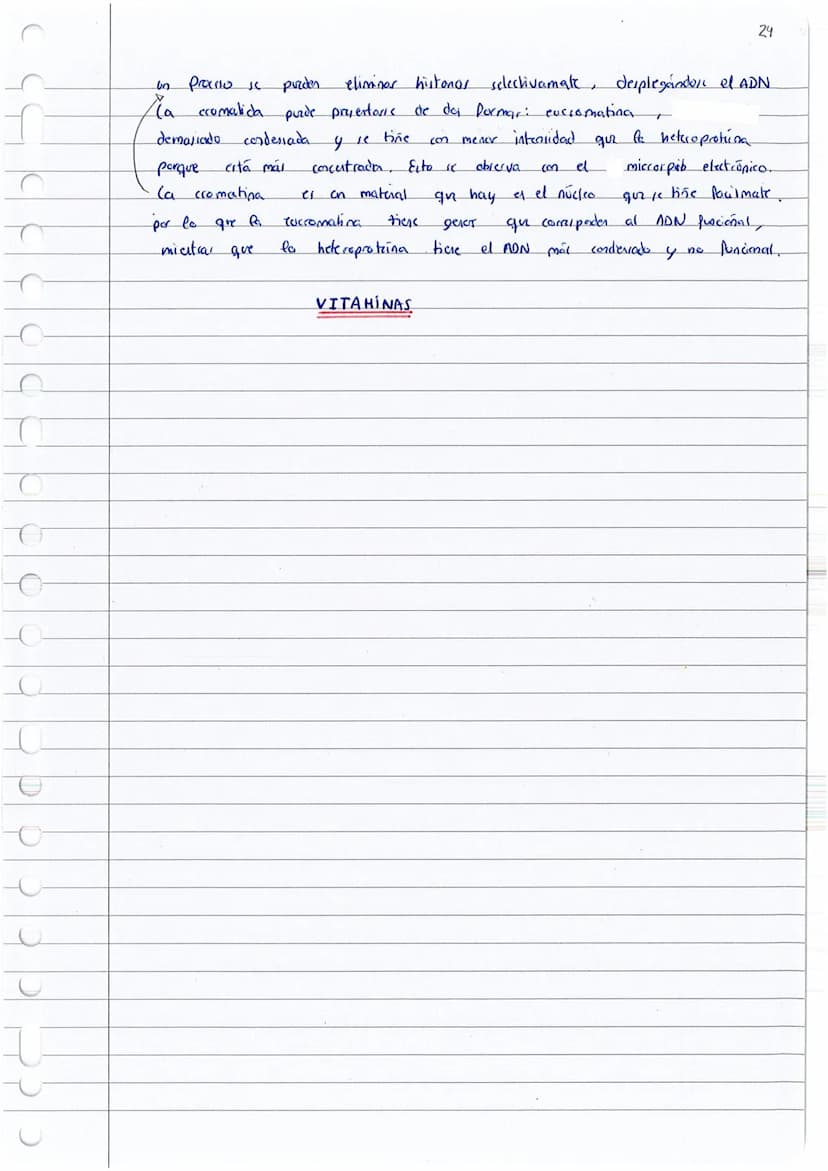 24
un proceso se pueden eliminar histonas selectivamate, desplegándose el ADN
La cromatida puede presentarse de dos formas: eucromatina,
demasiado condensada y se tiñe con menor intensidad que la heteroproteina
porque está más concentrada. Esto se observa con el microscopio electrónico.
La cromatina es un material que hay en el núcleo que se tiñe facilmate.
por lo que la eucromatina tiene genes que corresponden al ADN funcional,
mientras que la heteroproteina tiene el ADN más condensado y no funcional.
VITAMINAS